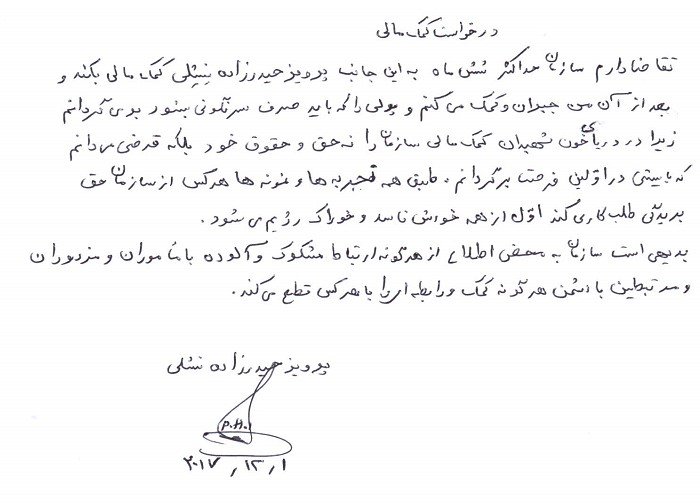 درخواست کمک مالی
تقاضا دارم سازمان حداکثر شش ماه به این جانب پرویز حیدرزاده نشلی کمک مالی بکند و
بعد از آن من جبران و کمک می کنم و پولی را که باید صرف سرنگونی بشود برمی گردانم
زیرا در دریای خون شهیدان کمک مالی سازمان را نه حق و حقوق خود بلکه قرضی می دانم
که بایستی در اولین فرصت برگردانم. طبق همه تجربه ها و نمونه ها هرکس از سازمان حق
بریدگی طلب کاری کند اول از همه خودش فاسد و خوراک رژیم می شود.
بدیهی است سازمان به محض اطلاع از هرگونه ارتباط مشکوک و آلوده با مأموران و مزدوران
و مرتبطین با دشمن هرگونه کمک و رابطه ای را با هرکس قطع می کند.
پرویز حیدرزاده نشلی
P.H.
۲۰۱۷,۱۲,۱